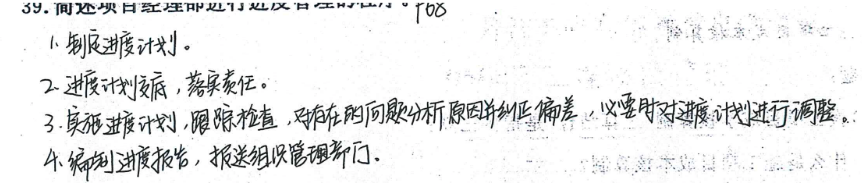 39.简述项目经理部进行进度管理的程序。P68
1.制定进度计划。
2.进度计划交底，落实责任。
3.实施进度计划，跟踪检查，对存在的问题分析原因并纠正偏差，必要时对进度计划进行调整。
4.编制进度报告，报送组织管理部门。